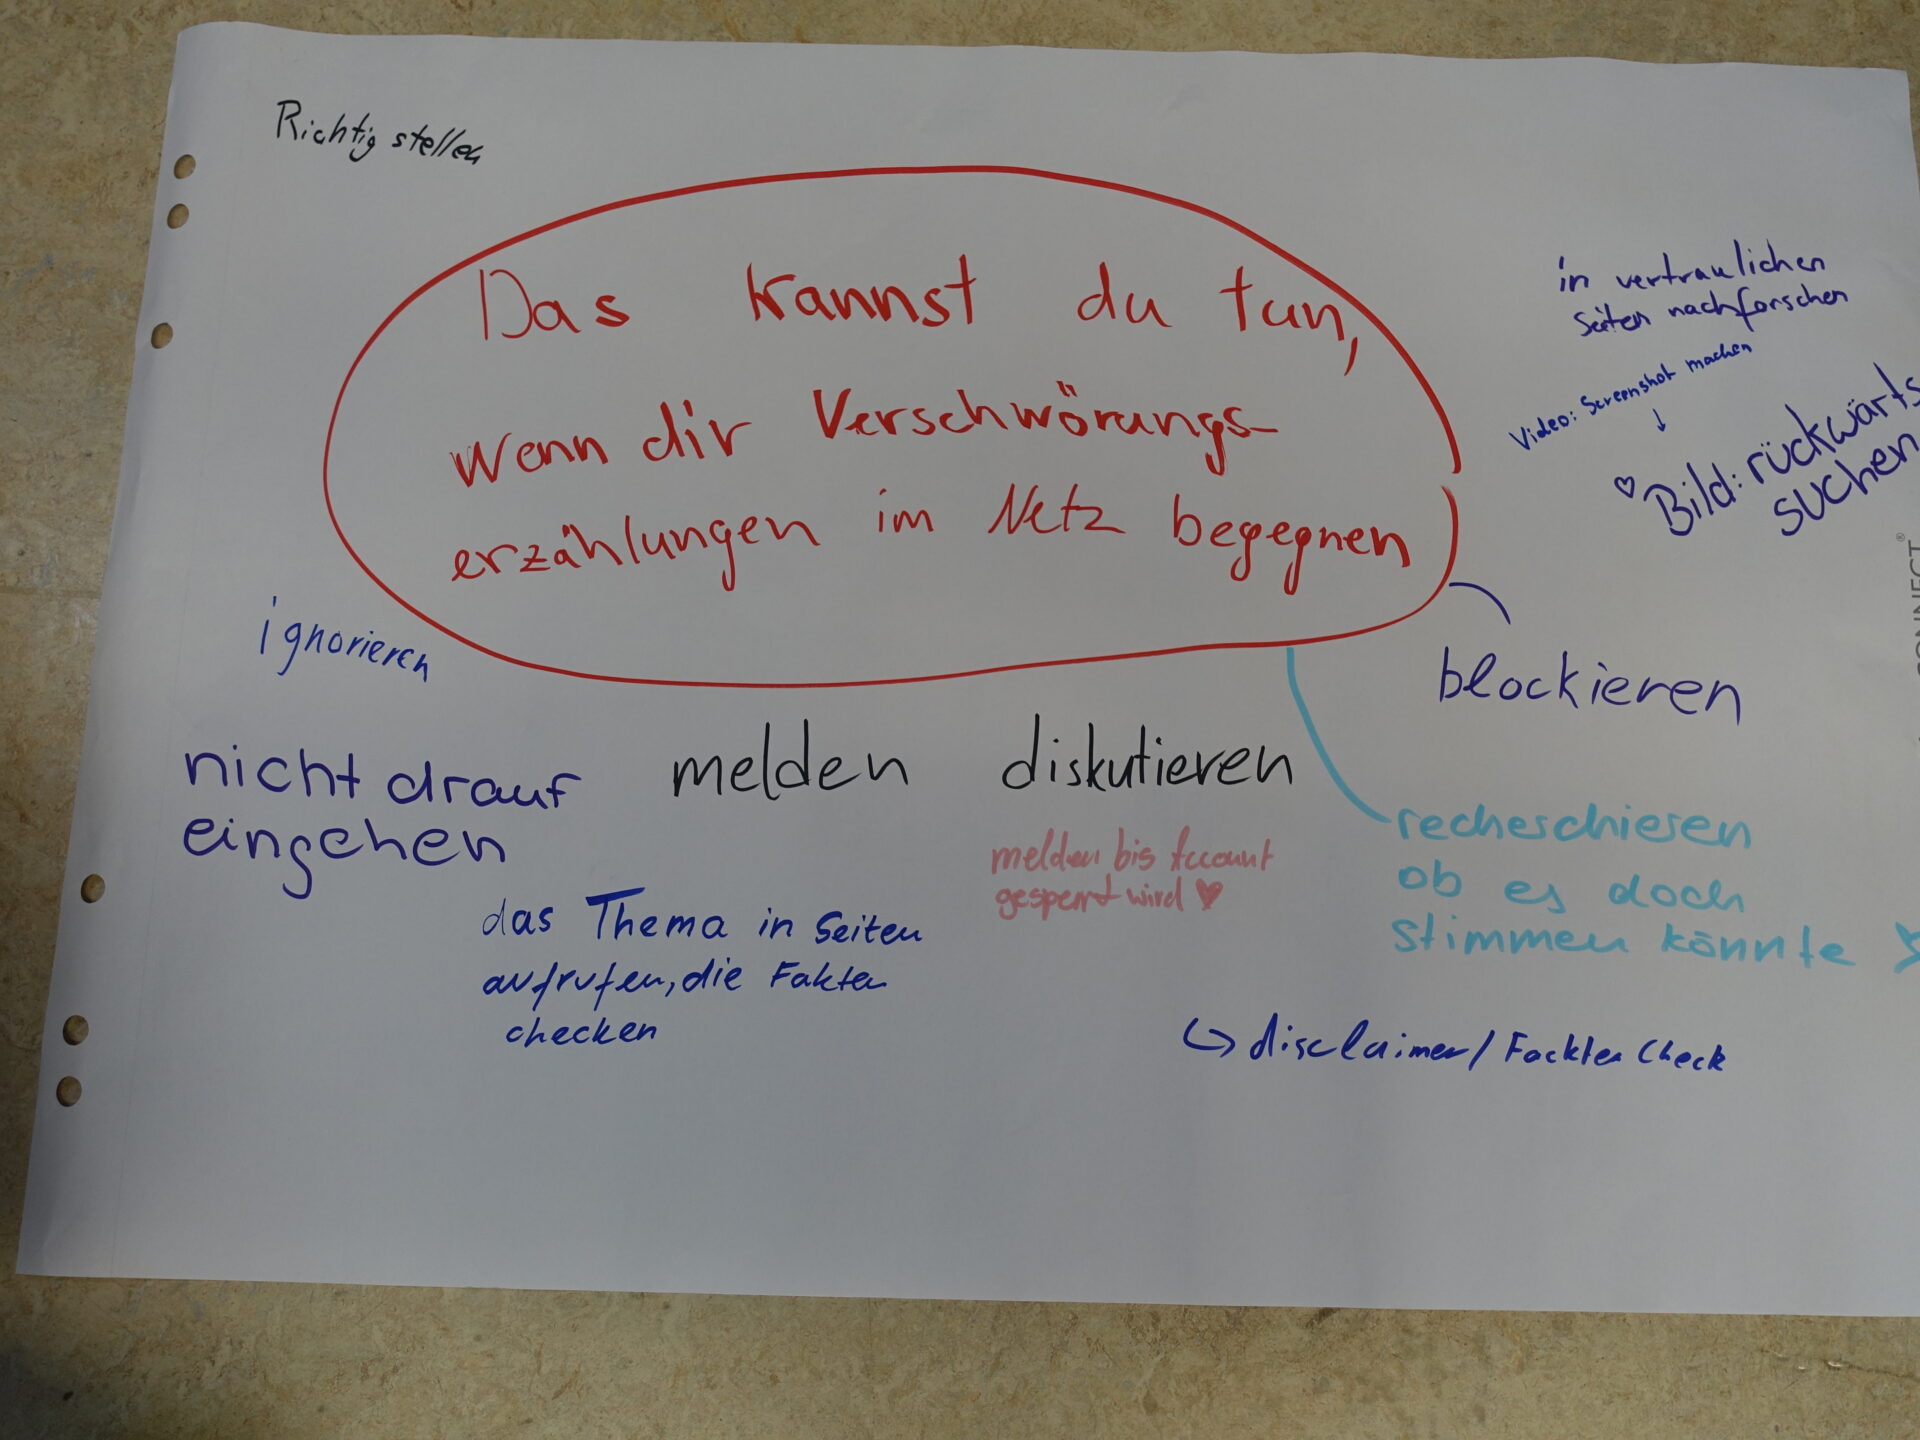 Richtig stellen
Das kannst du tun,
wenn dir Verschwörungs-
erzählungen im Netz begegnen
in vertraulichen
Seiten nachforschen
Video: Screenshot machen
↓
♡ Bild: rückwärts
suchen
ignorieren
blockieren
nicht drauf
eingehen
melden
diskutieren
melden bis Account
gesperrt wird ♥
recheschieren
ob es doch
stimmen könnte
das Thema in Seiten
aufrufen, die Fakten
checken
↪ disclaimer/ Fackten Check